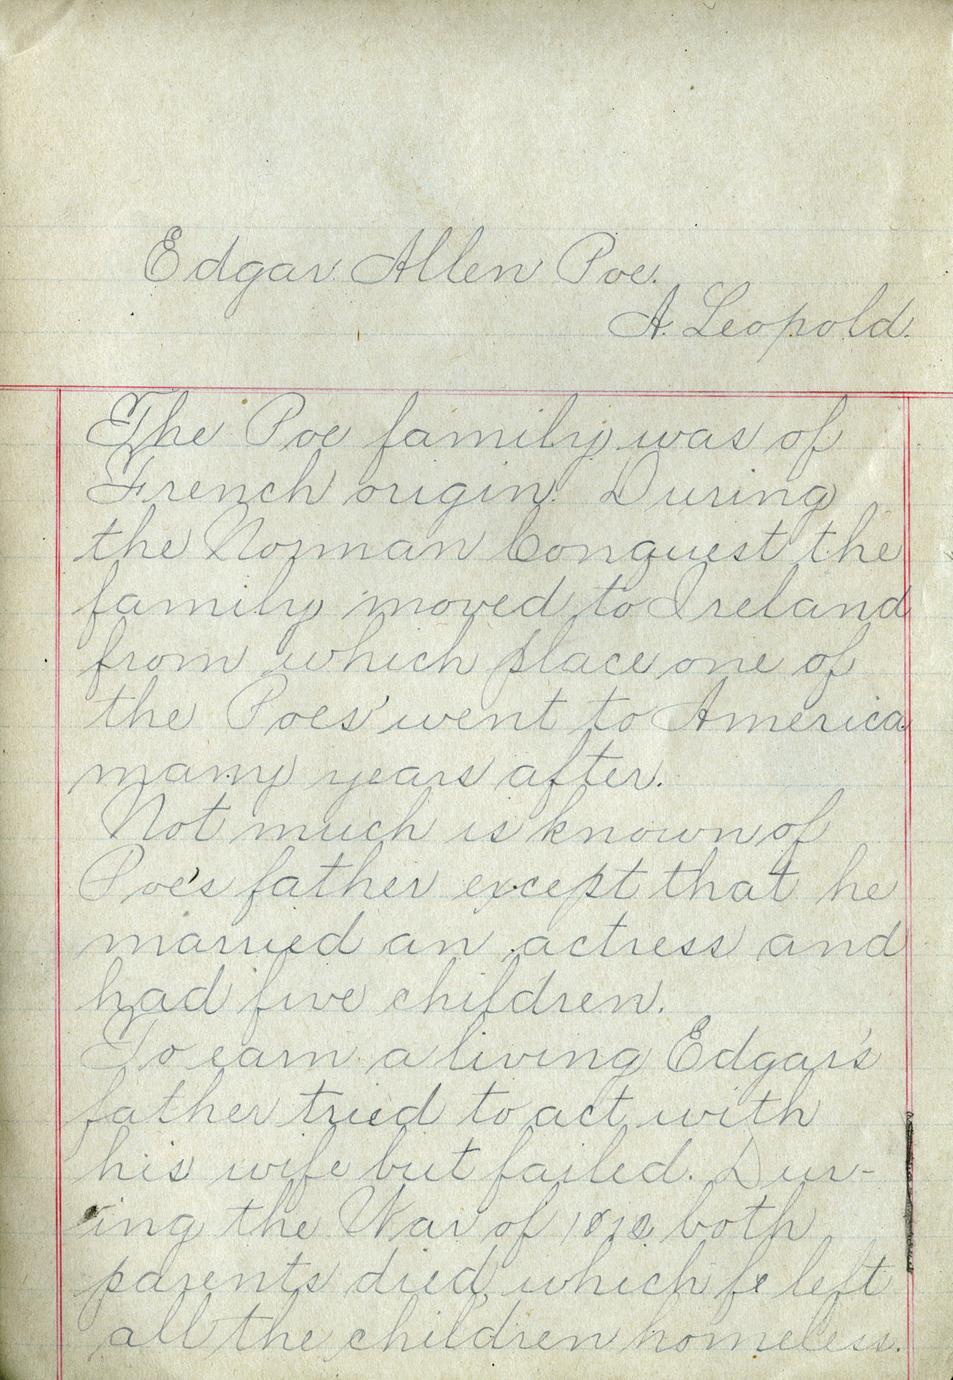 Edgar Allen Poe.
A. Leopold.
The Poe family was of
French origin. During
the Norman Conquest the
family moved to Ireland
from which place one of
the Poes' went to America
many years after.
Not much is known of
Poe's father except that he
married an actress and
had five children.
To earn a living Edgar's
father tried to act with
his wife but failed. Dur-
ing the War of 1812 both
parents died, which left
all the children homeless.